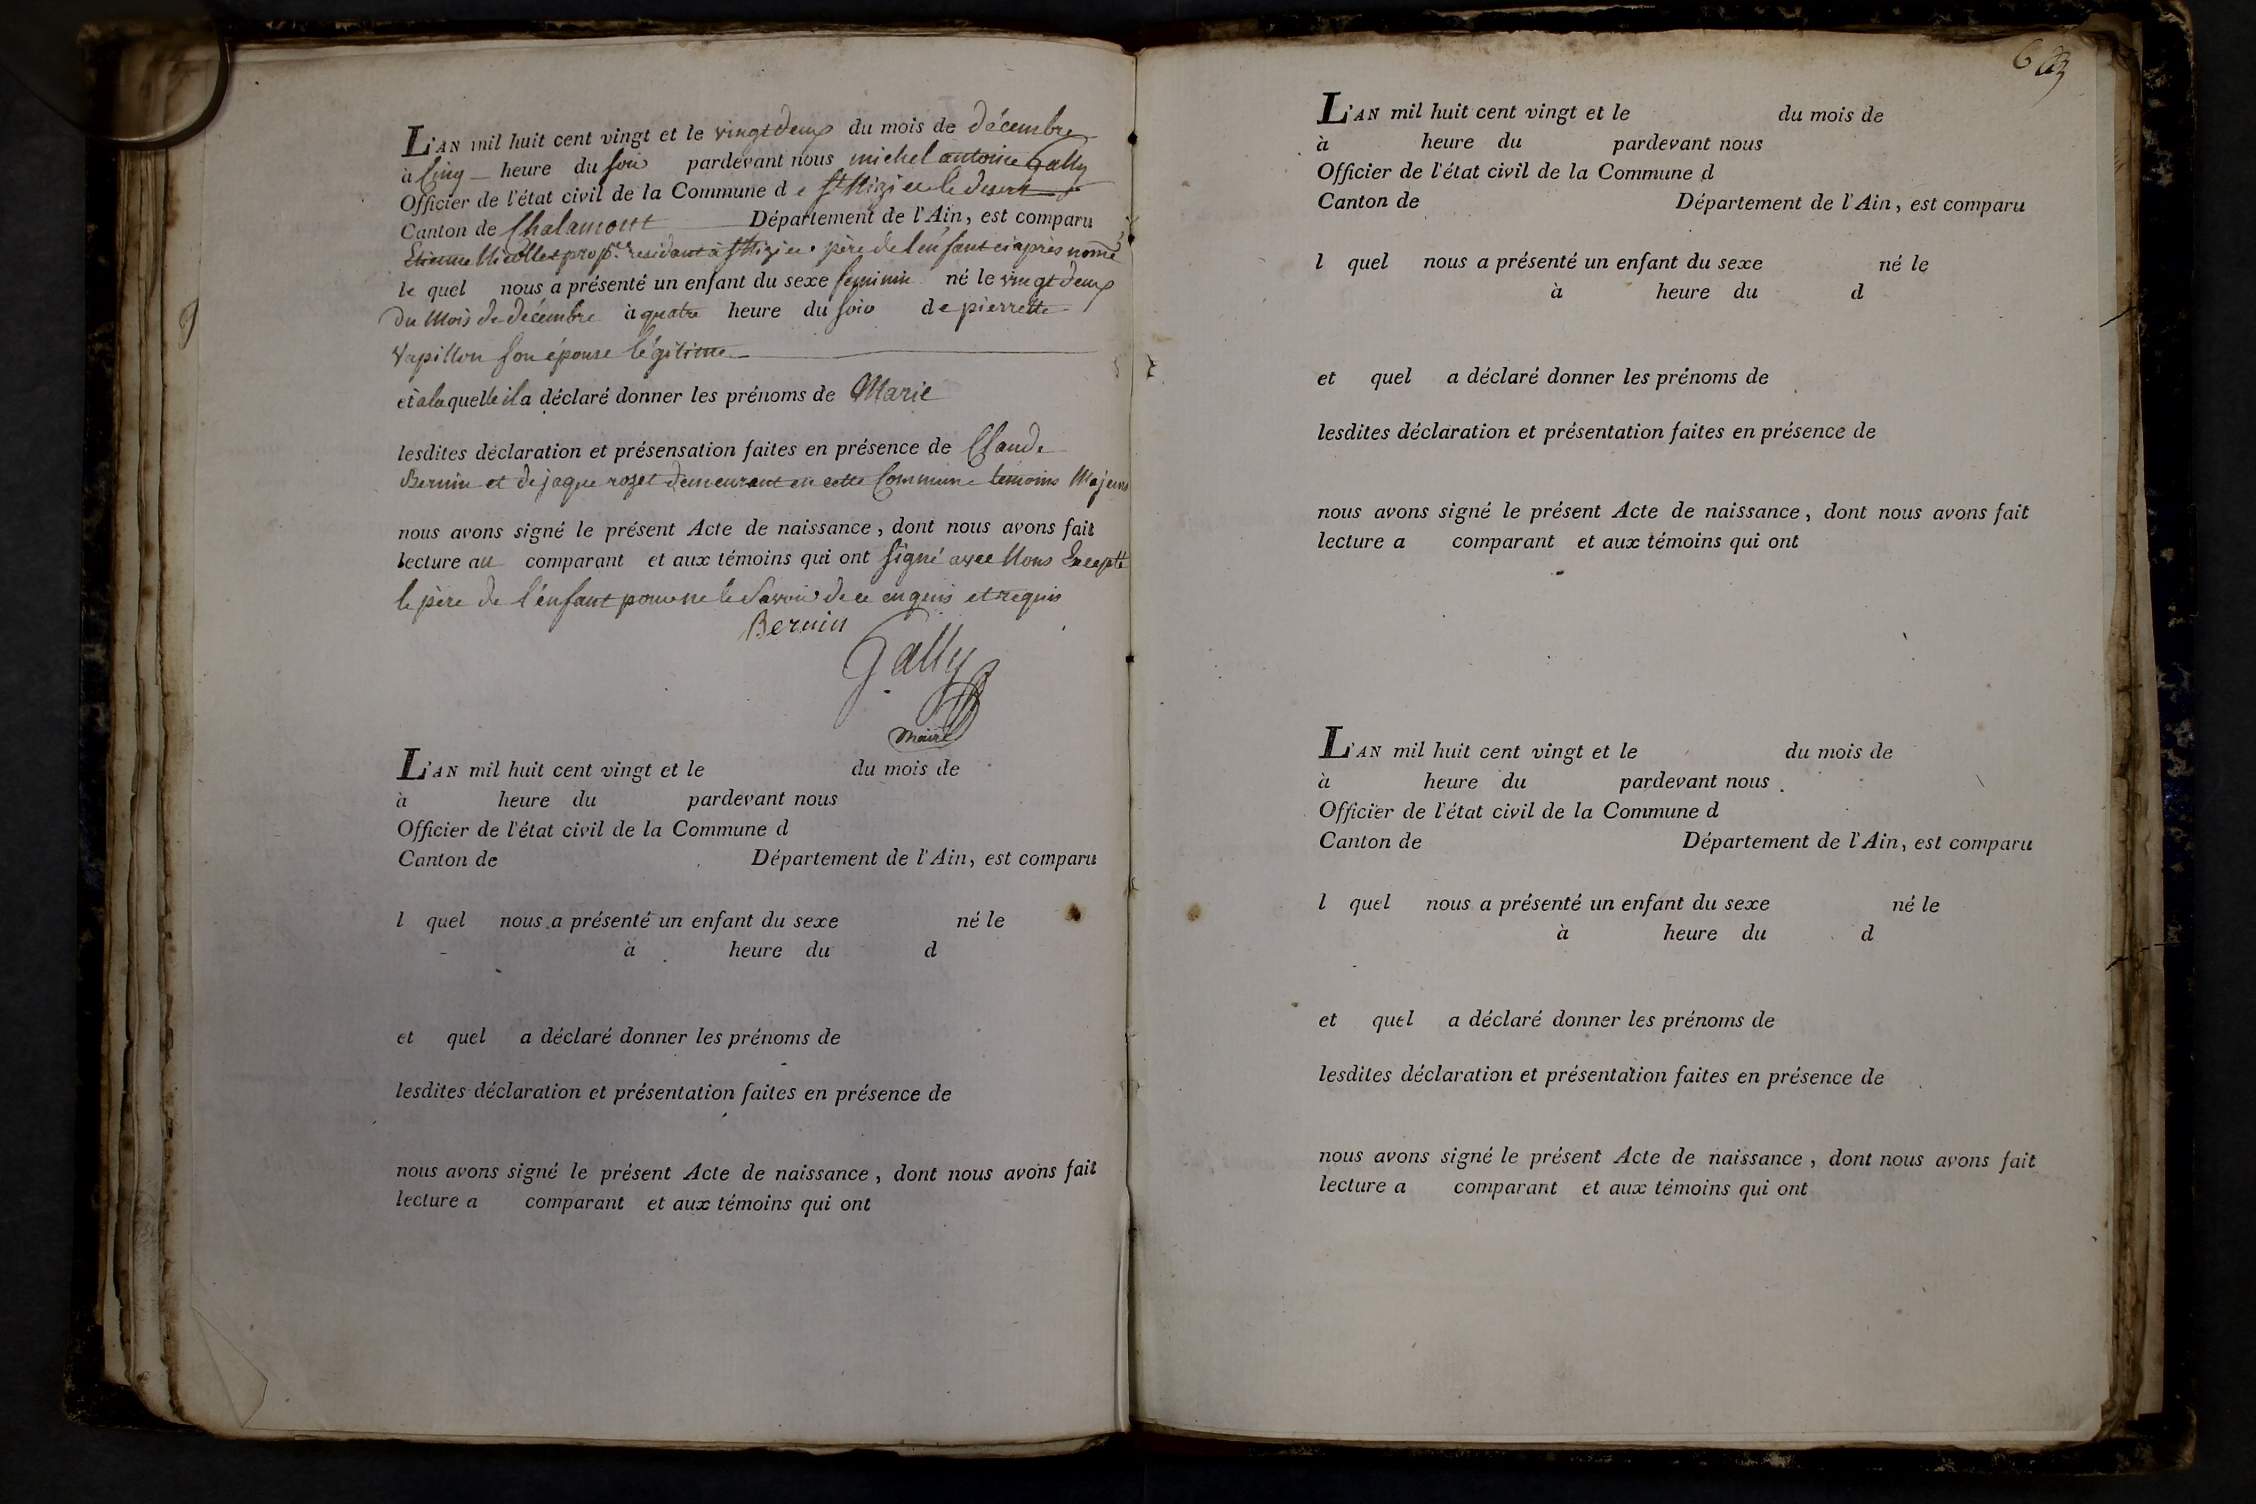 L'AN mil huit cent vingt et le vingt deux du mois de décembre
à Cinq heure du soir pardevant nous michel antoine Gally
Officier de l'état civil de la Commune de St Nizier le desert
Canton de Chalamont Département de l'Ain, est comparu
Etienne Nicollet prop.re residant à St Nizier père de l'enfant ci après nomé
le quel nous a présenté un enfant du sexe féminin né le vingt deux
du Mois de décembre à quatre heure du soir de pierrette
Vapillon son épouse légitime
et à laquelle il a déclaré donner les prénoms de Marie
lesdites déclaration et présensation faites en présence de Claude
Bernin et de jaque rozet demeurant en cette Commune temoins Majeurs
nous avons signé le présent Acte de naissance, dont nous avons fait
lecture au comparant et aux témoins qui ont signé avec Nous Excepté
le père de l'enfant pour ne le savoir de ce enquis et requis
Bernin
Gally
maire
L'AN mil huit cent vingt et le du mois de
à heure du pardevant nous
Officier de l'état civil de la Commune d
Canton de Département de l'Ain, est comparu
l quel nous a présenté un enfant du sexe né le
à heure du d
et quel a déclaré donner les prénoms de
lesdites déclaration et présentation faites en présence de
nous avons signé le présent Acte de naissance, dont nous avons fait
lecture a comparant et aux témoins qui ont
L'AN mil huit cent vingt et le du mois de
à heure du pardevant nous
Officier de l'état civil de la Commune d
Canton de Département de l'Ain, est comparu
l quel nous a présenté un enfant du sexe né le
à heure du d
et quel a déclaré donner les prénoms de
lesdites déclaration et présentation faites en présence de
nous avons signé le présent Acte de naissance, dont nous avons fait
lecture a comparant et aux témoins qui ont
L'AN mil huit cent vingt et le du mois de
à heure du pardevant nous
Officier de l'état civil de la Commune d
Canton de Département de l'Ain, est comparu
l quel nous a présenté un enfant du sexe né le
à heure du d
et quel a déclaré donner les prénoms de
lesdites déclaration et présentation faites en présence de
nous avons signé le présent Acte de naissance, dont nous avons fait
lecture a comparant et aux témoins qui ont